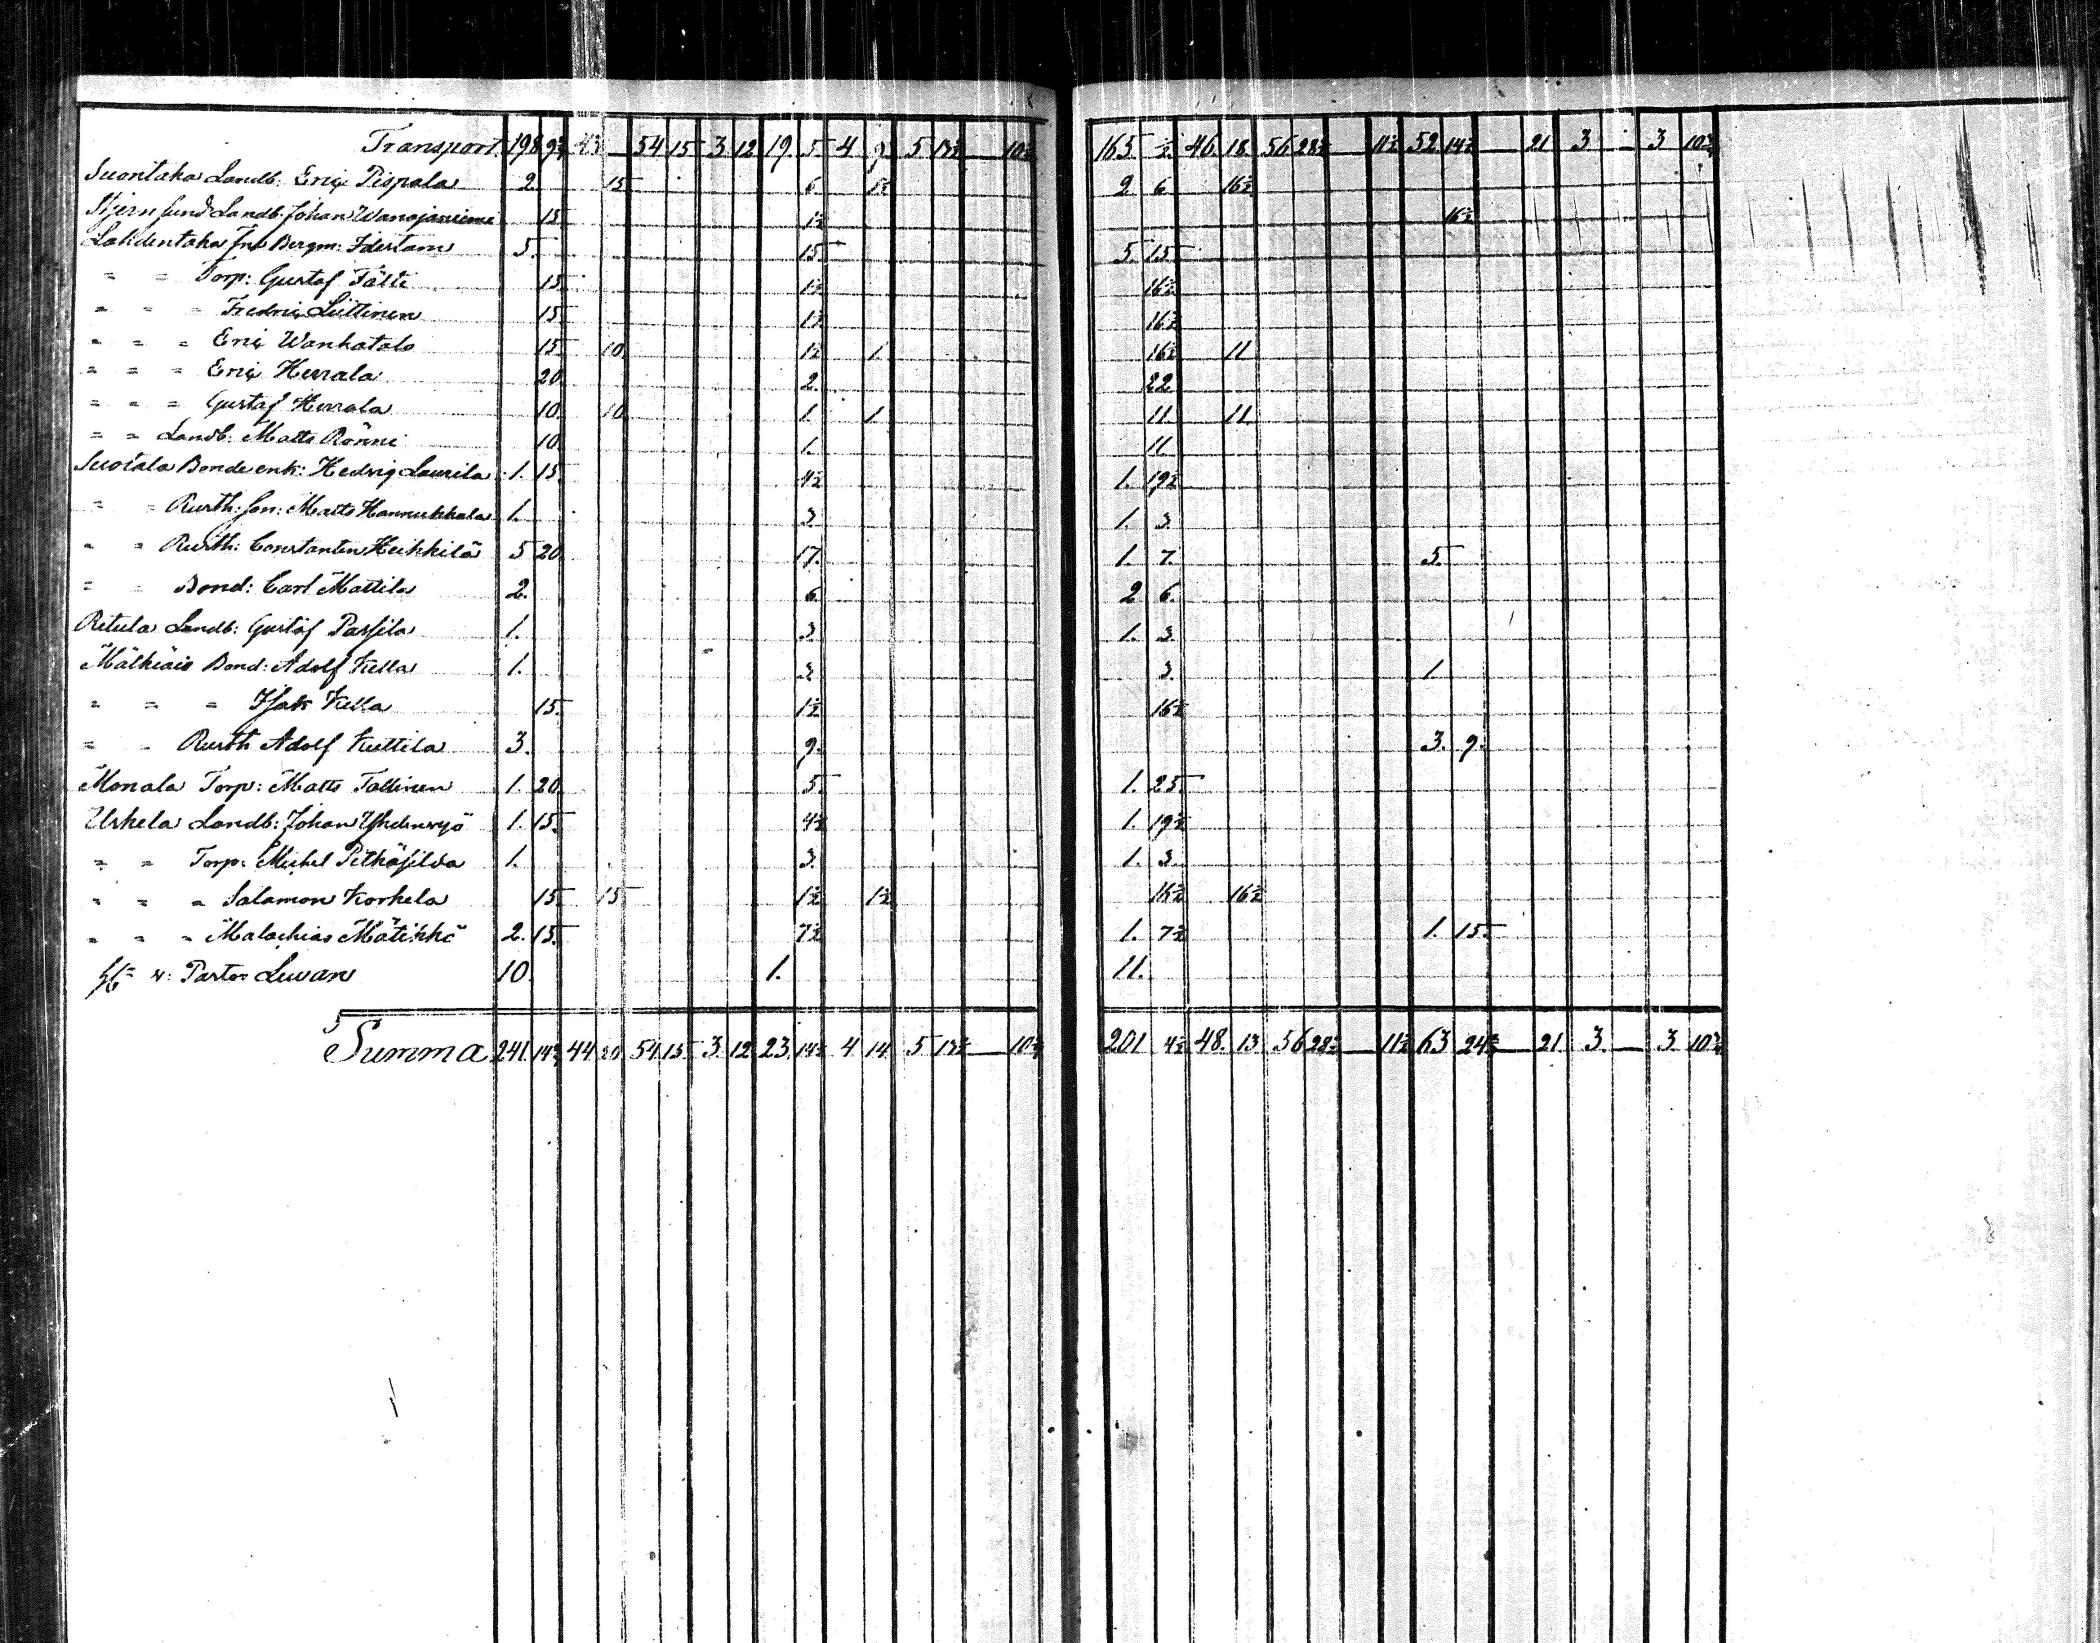 Transport 198 9½ 43 — 54 15 3 12 19 5 4 9 5 13½ — 10½ 165 ½ 46 18 56 28½ — 11½ 52 14½ — 21 3 — 3 10¾
Suontaka Landb: Eriç Pispala 2 15 6 1½ 2 6 16½
Stjernsund Landb: Johan Wanajanieme 15 1½ 16½
Lahdentaka Bergm: Idestam 5. 15 5 15
" " Torp: Gustaf Tätti 15 1½ 16½
" " " Fredriç Lüttinen 15 1½ 16½
" " " Eriç Wanhatalo 15 10 1½ 1 16½ 11
" " " Eriç Herrala 20 2. 22
" " " Gustaf Herrala 10. 10 1. 1 11. 11
" " Landb: Matts Rönni 10 1. 11.
Suotala Bonde enk: Hedvig Laurila 1. 15 4½ 1. 19½
" " Rusth: son: Matts Hannukkala 1. 3. 1. 3.
" " Rusth: Constantin Heikkilä 5 20 17. 1. 7. 5.
" " Bond: Carl Mattila 2. 6. 2 6.
Retula Landb: Gustaf Passila 1. 3 1. 3
Mälkiäis Bond: Adolf Kella 1. 3 3. 1
" " " Isak Kella 15. 1½ 16½
" " Rusth Adolf Kuttila 3. 9. 3. 9.
Monala Torp: Matts Tallinen 1. 20 5 1. 25.
Urhela Landb: Johan Yhdenvyö 1. 15. 4½ 1. 19½
" " Torp: Michel Pitkäsilda 1. 3. 1. 3.
" " " Salamon Korhela 15 15 1½ 1½ 16½ 16½
" " " Malachias Mätikkö 2. 15. 7½ 1. 7½ 1. 15.
Pastor Lewan 10. 1. 11.
Summa 241 14½ 44 20 54 15 3 12 23 14½ 4 14 5 13½ — 10½ 201 4½ 48. 13 56 28½ — 11½ 63 24½ — 21. 3. — 3 10¾